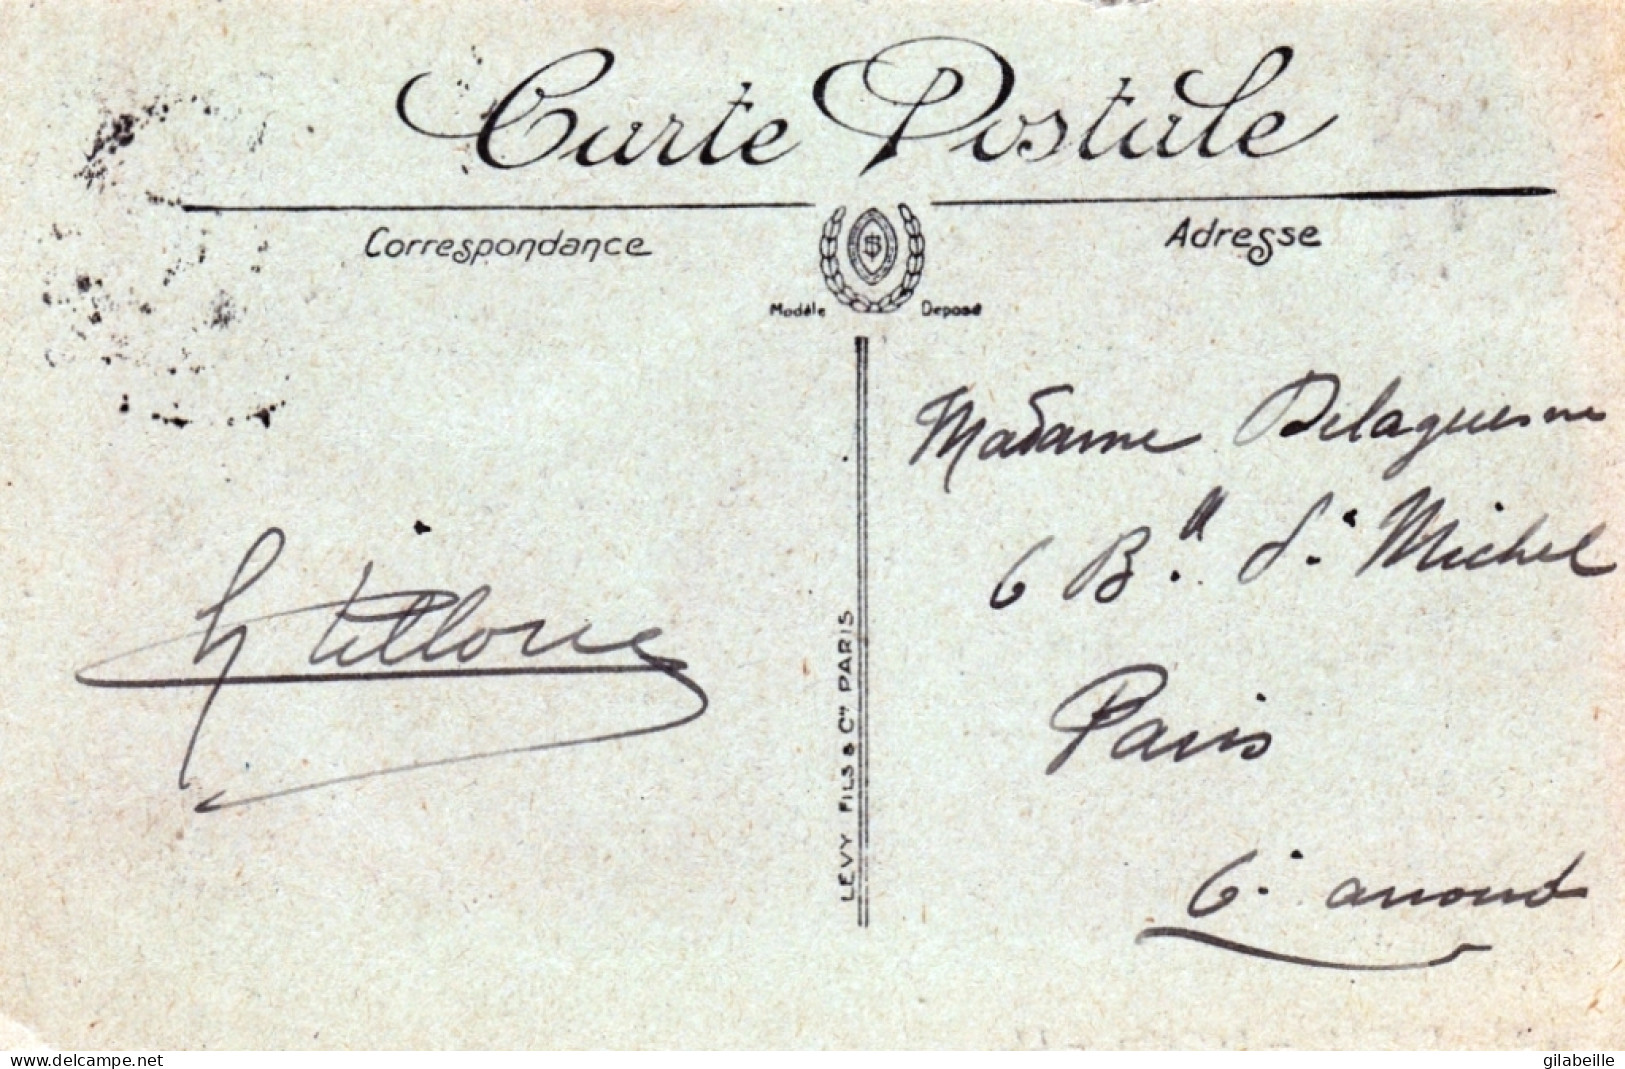 Carte Postale
Correspondance
Adresse
Modèle Déposé
LEVY FILS & Cie PARIS
Madame Delaguesne
6 Bd St Michel
Paris
6e arrond
delcampe.net
gilabeille